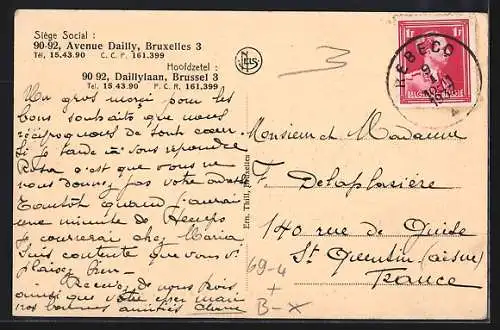 Siège Social :
90-92, Avenue Dailly, Bruxelles 3
Tél. 15.43.90 C. C. P. 161.399
Hoofdzetel :
90 92, Daillylaan, Brussel 3
Tel. 15 43.90 P. C. R. 161.399
NELS
3
REBECQ
1F 1F
BELGIQUE-BELGIË
Un gros merci pour les
bons souhaits que nous
réciproquons de tout cœur.
Si je tarde à vous répondre
c'est que vous ne
nous donnez pas votre
Tantôt quand j'aurai
une minute de temps
je courrerai chez Maria
Suis contente que vous
plaisez bien.
Recevez de nous trois,
ainsi que votre cher mari
nos bonnes amitiés
Ern. Thill, Bruxelles
Monsieur et Madame
F. Delaplasière
140 rue de Guise
St Quentin (Aisne)
France
69-4
+
B-X